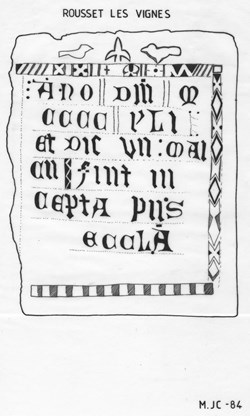 ROUSSET LES VIGNES
: ANO DNI M
CCCC XLI
et DIE VII : MAI
fuit in
CEPTA PNS
ECCLĀ
M.JC -84